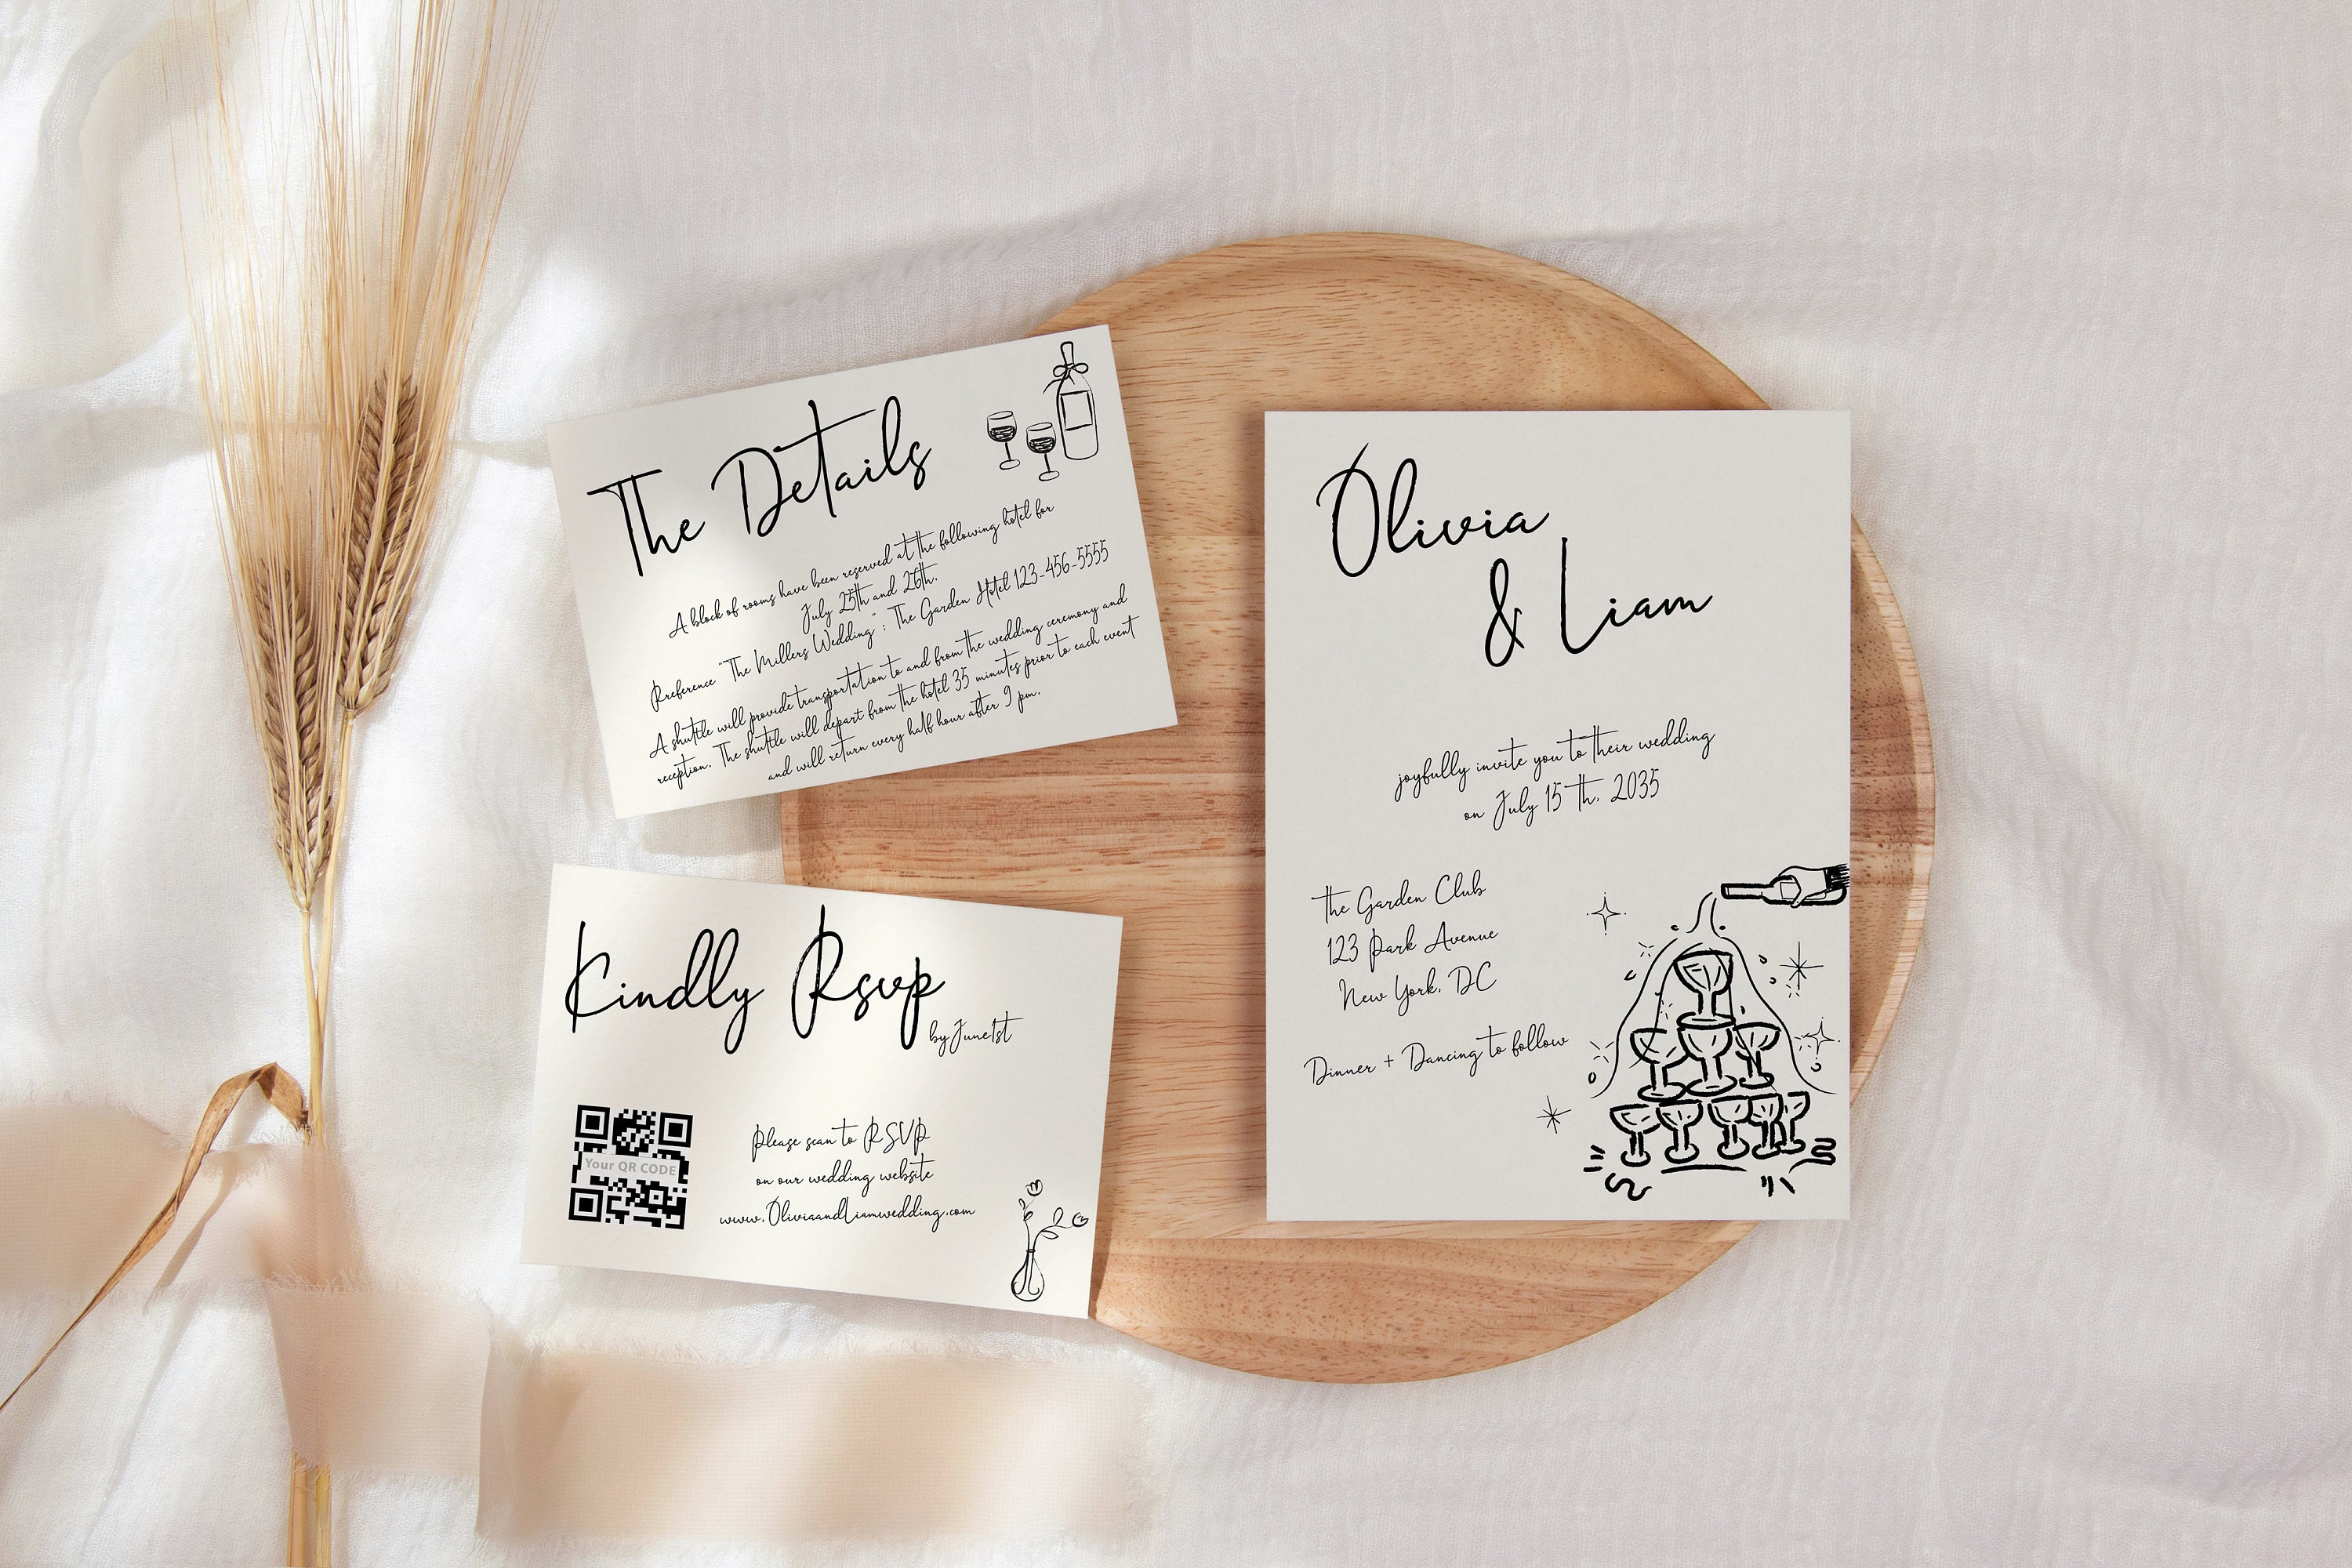 The Details
A block of rooms have been reserved at the following hotel for
July 25th and 26th.
Rreference "The Millers Wedding" : The Garden Hotel 123-456-5555
A shuttle will provide transportation to and from the wedding ceremony and
reception. The shuttle will depart from the hotel 35 minutes prior to each event
and will return every half hour after 9 pm.
Kindly Rsvp
by June 1st
Your QR CODE
Please scan to RSVP
on our wedding website
www.OliviaandLiamwedding.com
Olivia
& Liam
joyfully invite you to their wedding
on July 15 th, 2035
the Garden Club
123 Park Avenue
New York, DC
Dinner + Dancing to follow